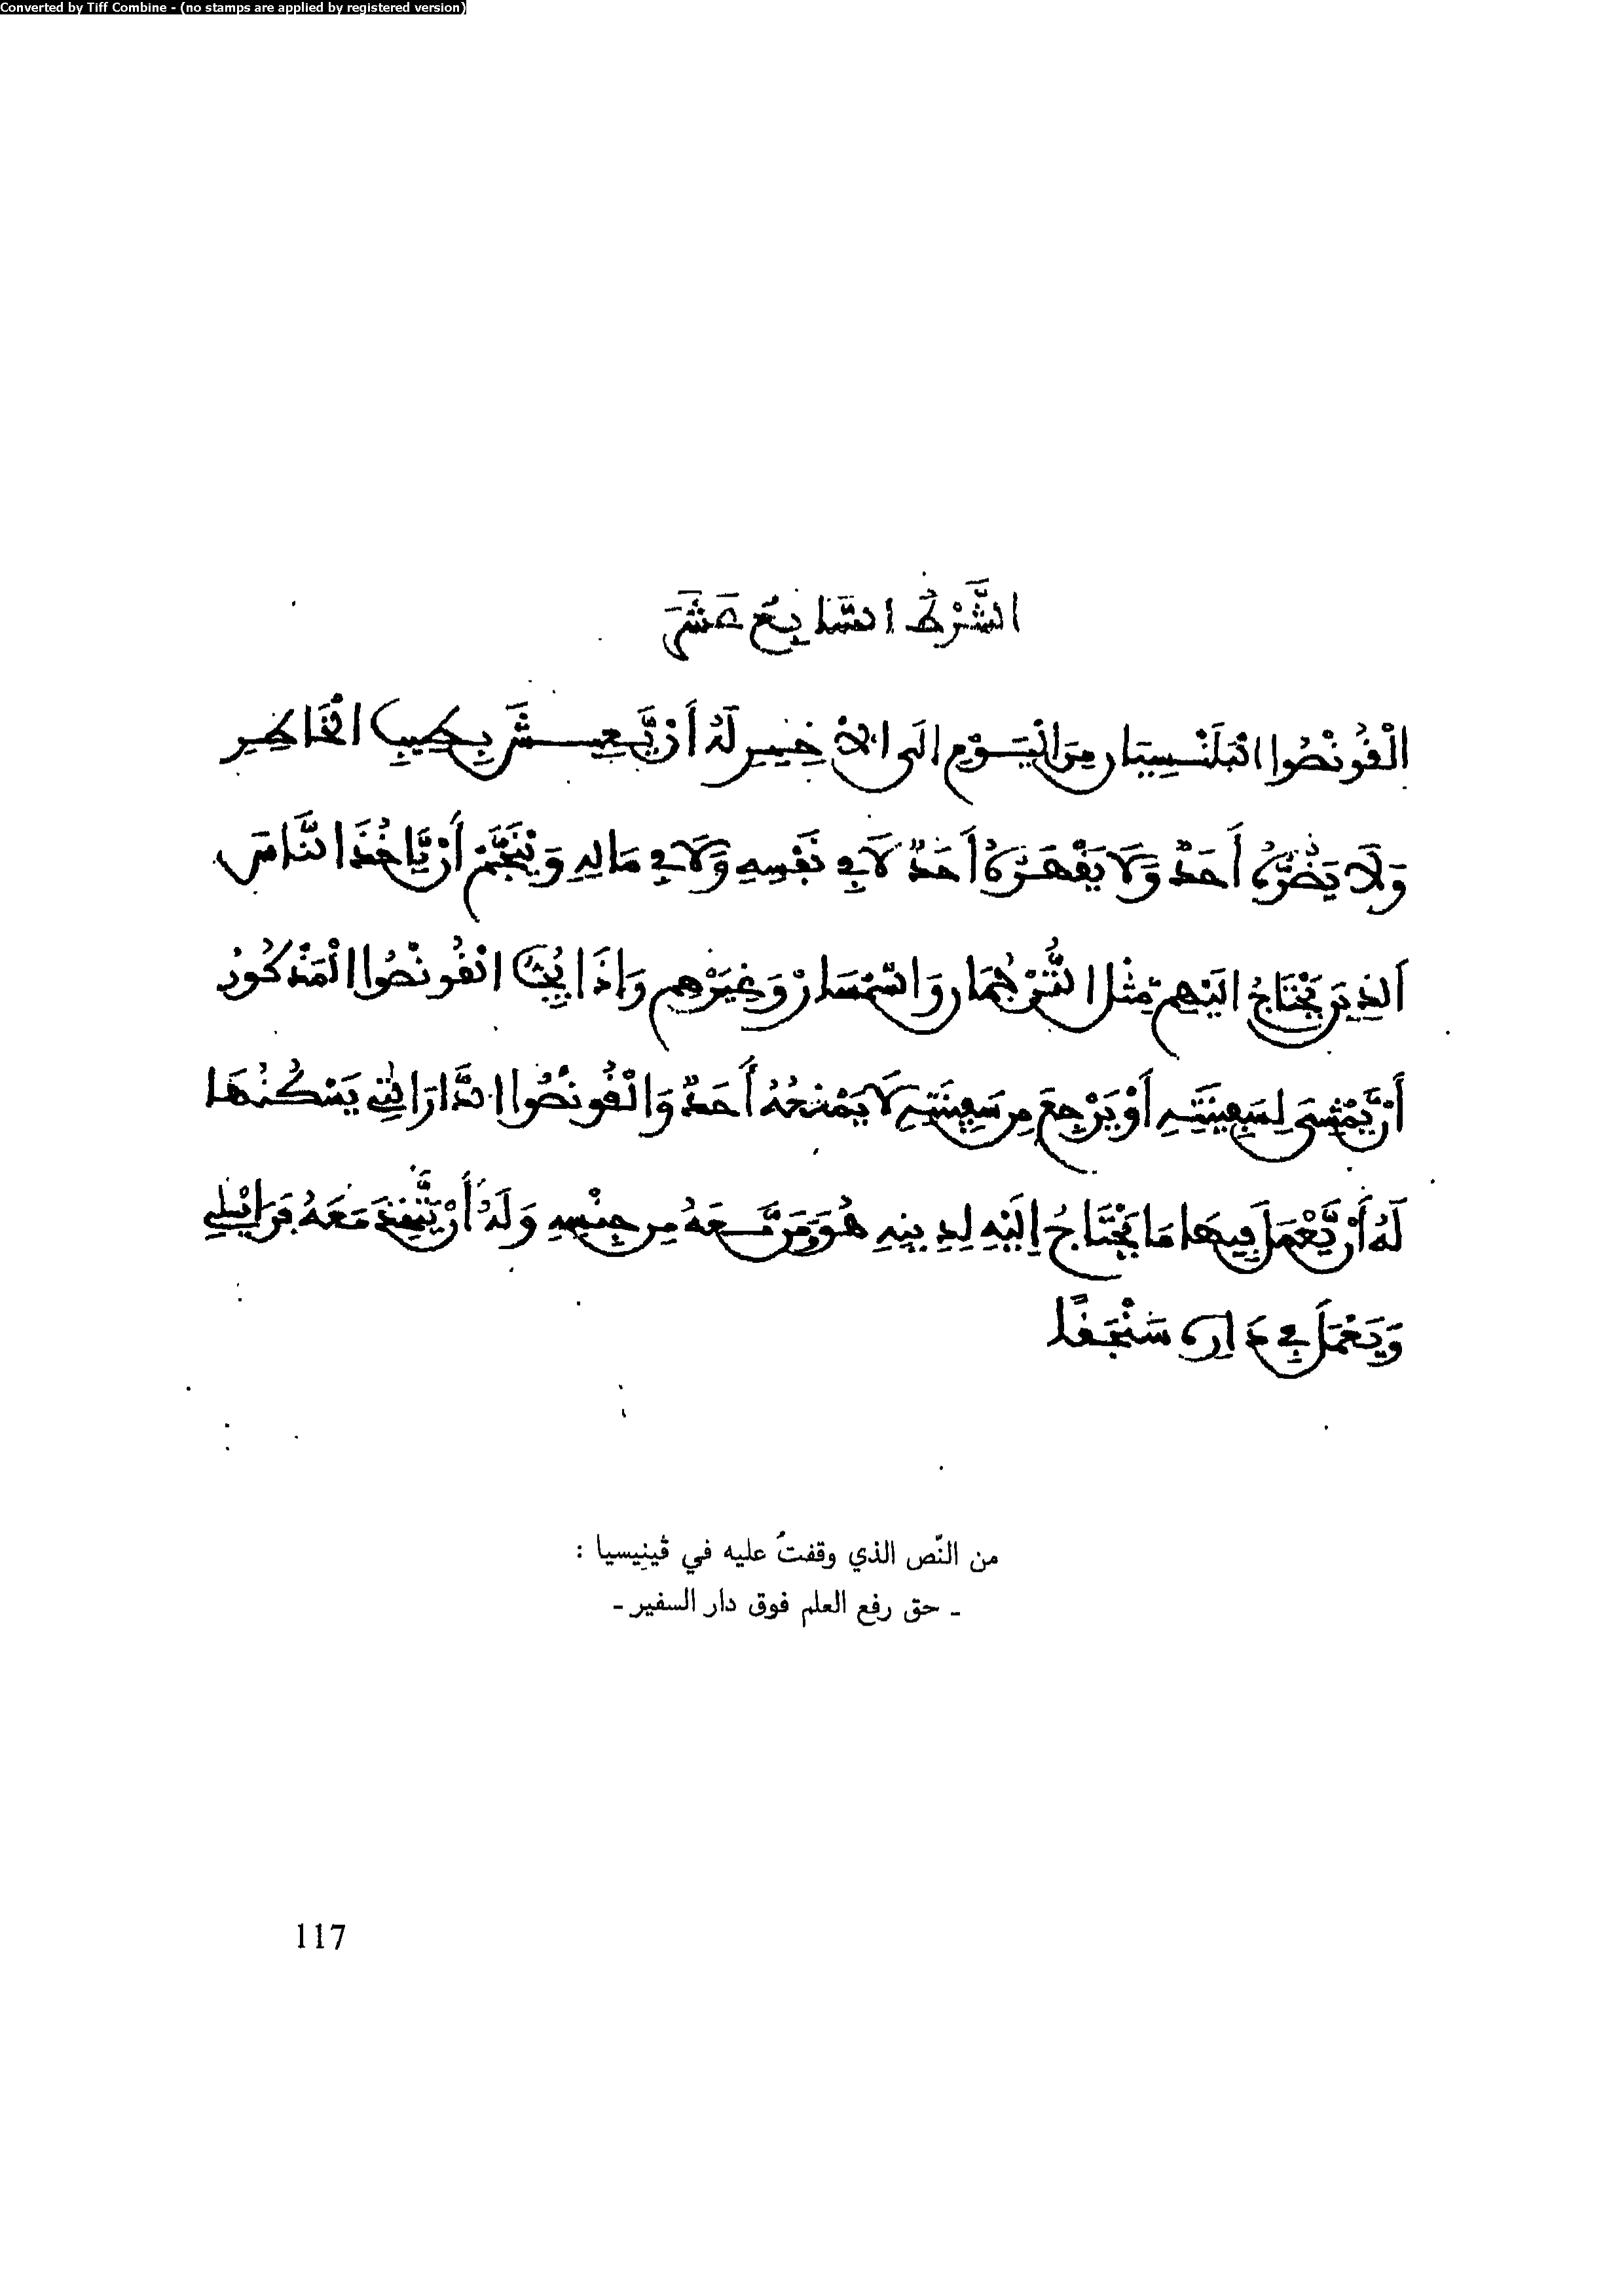 Converted by Tiff Combine - (no stamps are applied by registered version)
الشَّرْطُ السَّابِعَ عَشَرَ
الْفُونْصُوا الْبَلَنْسِيَان مِنَ الْيَوْمِ إلَى الآنْ خِيِيرلَهُ أَنْ يَّعِيشَ بِطِيبِ الْخَاطِرِ
وَلَا يَضُرُّهُ أَحَدٌ وَلَا يَقْهَرُهُ أَحَدٌ لَا فِي نَفْسِهِ وَلَا فِي مَالِهِ وَيُنَجَّمْ أَنْ يَّاخُذَ النَّاسَ
الذِينَ يَحْتَاجُ اليَهِم مِّثْل التُّرْجُمَان وَالسَّمْسَارْ وَغِيَرْهِم وَاذَا يُحِبُّ الْفُونْصُوا الْمَذْكُورْ
أَنْ يَّمْشِي لِسَفِينَتِهِ أَوْ يَرْجِعَ مِن سَفِينَتِهِ لَا يَمْنَعُهُ أَحَدٌ وَالْفُونْصُوا الدَّارَ التِي يَسْكُنُهَا
لَهُ أَنْ يَّعْمَلَ فِيهَا مَا يَحْتَاجُ إِلَيْهِ لِدِينِهِ هُوَ وَمَن مَّعَهُ مِن جِنْسِهِ وَلَهُ أَنْ يَّتَّخِذَ مَعَهُ فَرَايْلِي
وَيَعْمَلَ فِي دَارِهِ سَنْجَقًا
من النّص الذي وقفتُ عليه في ڤينيسيا :
ـ حق رفع العلم فوق دار السفير ـ
117